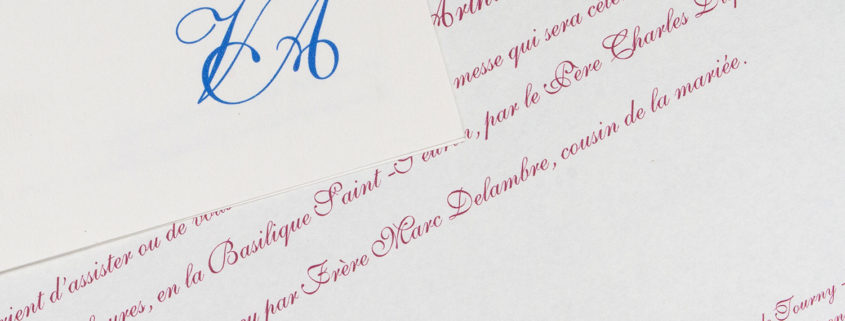 VA
Arth
messe qui sera célé
rient d'assister ou de vous
ures, en la Basilique Saint-Seurin, par le Père Charles Dup
ou par Frère Marc Delambre, cousin de la mariée.
de Tourny -